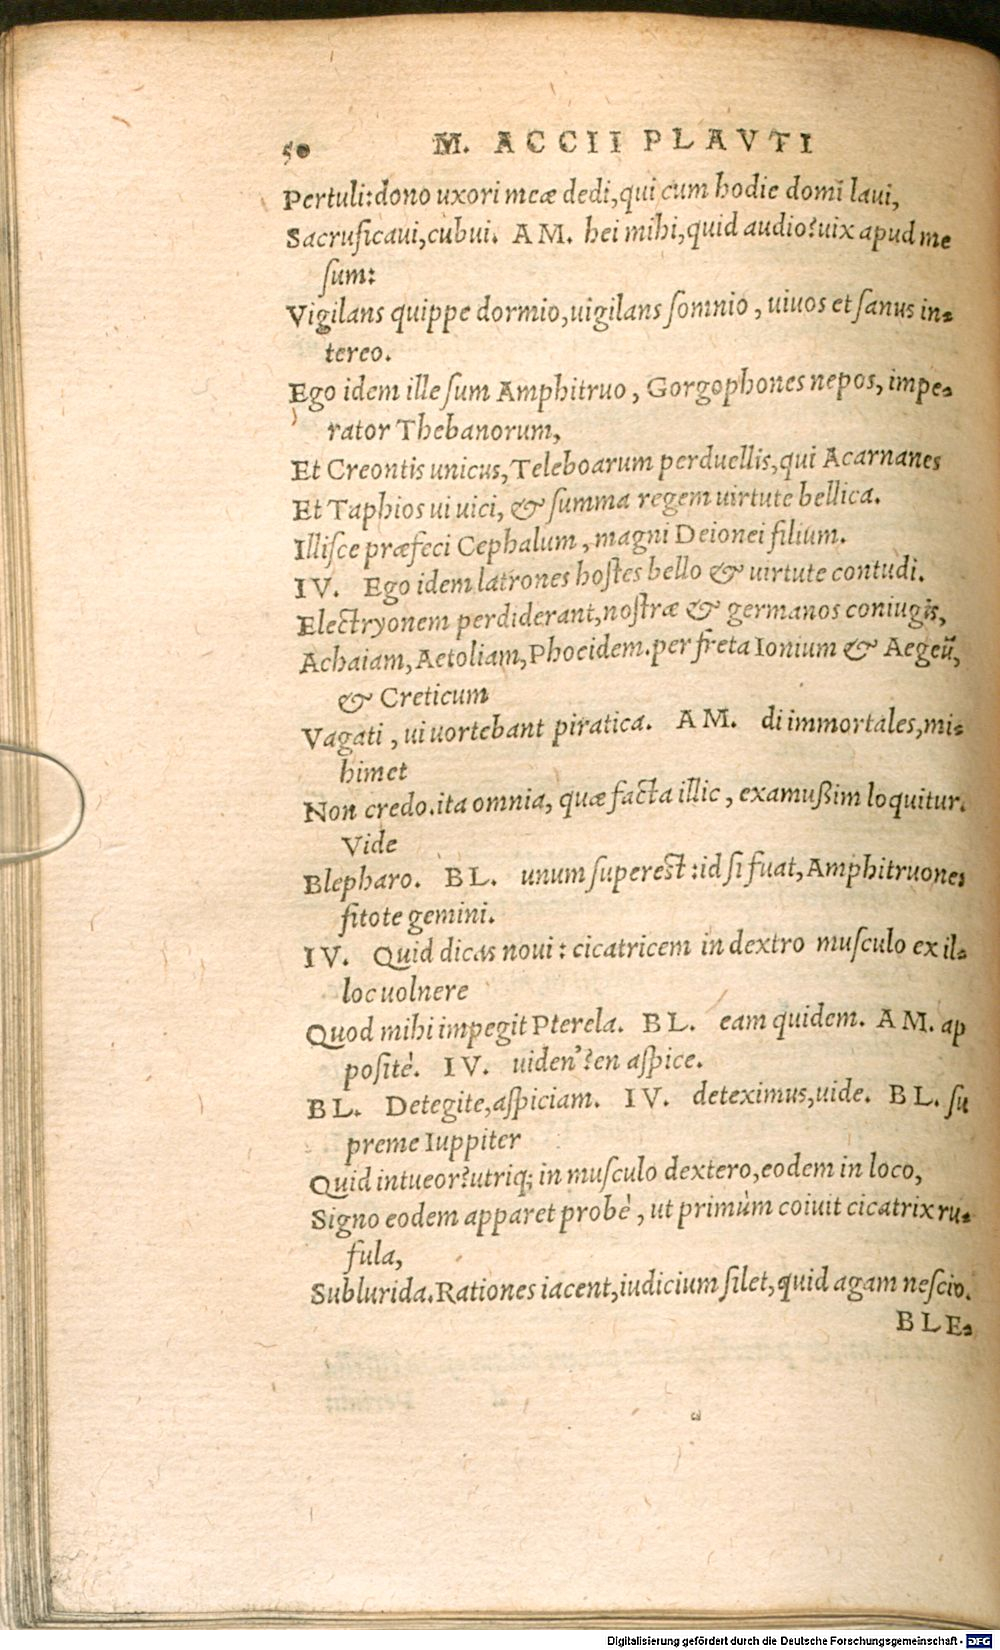 50 M. ACCII PLAVTI
Pertuli:dono uxori meæ dedi,qui cum hodie domi laui,
Sacruficaui,cubui. AM. hei mihi,quid audio?uix apud me
ſum:
Vigilans quippe dormio,uigilans ſomnio, uiuos et ſanus in-
tereo.
Ego idem ille ſum Amphitruo, Gorgophones nepos, impe-
rator Thebanorum,
Et Creontis unicus,Teleboarum perduellis,qui Acarnanes
Et Taphios ui uici, & ſumma regem uirtute bellica.
Illiſce præfeci Cephalum, magni Deionei filium.
IV. Ego idem latrones hoſtes bello & uirtute contudi.
Electryonem perdiderant,noſtræ & germanos coniugis,
Achaiam,Aetoliam,Phocidem.per freta Ionium & Aegeũ,
& Creticum
Vagati, ui uortebant piratica. AM. di immortales,mi-
himet
Non credo.ita omnia, quæ facta illic, examußim loquitur.
Vide
Blepharo. BL. unum ſupereſt:id ſi fuat,Amphitruones
ſitote gemini.
IV. Quid dicas noui: cicatricem in dextro muſculo ex il-
loc uolnere
Quod mihi impegit Pterela. BL. eam quidem. AM. ap
poſitè. IV. uiden'?en aſpice.
BL. Detegite,aſpiciam. IV. deteximus,uide. BL. ſu
preme Iuppiter
Quid intueor?utriq; in muſculo dextero,eodem in loco,
Signo eodem apparet probè, ut primùm coiuit cicatrix ru-
fula,
Sublurida.Rationes iacent,iudicium ſilet,quid agam neſcio.
BLE-
Digitalisierung gefördert durch die Deutsche Forschungsgemeinschaft - DFG